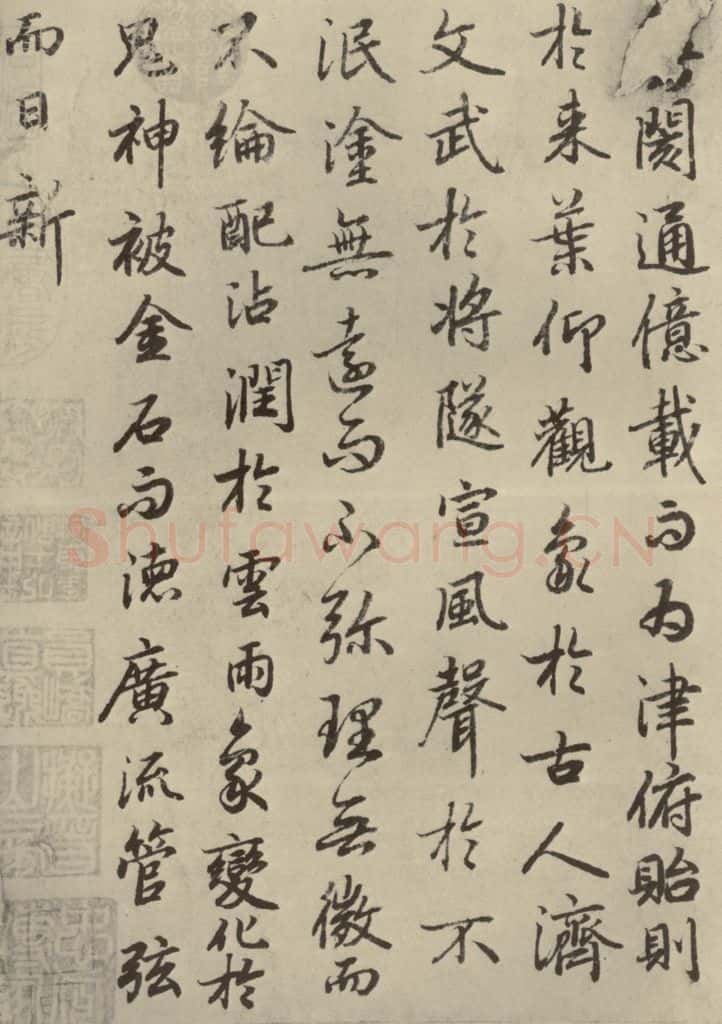 閡通億載而为津俯貽則
於来葉仰觀象於古人濟
文武於将隊宣風聲於不
泯塗無遠而不弥理無微而
不綸配沾潤於雲雨象變化於
鬼神被金石而徳廣流管弦
而日新
Shufawang.CN